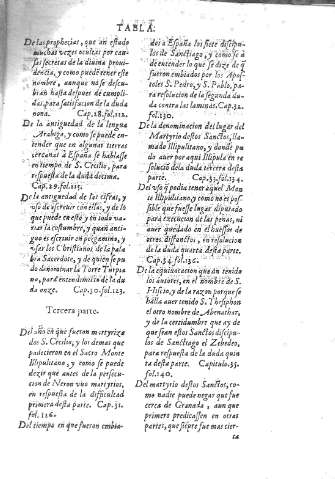 TABLA.
De las prophecias, que an estado
muchas vezes ocultas por cau-
sas secretas de la diuina proui-
dencia, y como puede tener este
nombre, aunque no se descu-
bran hasta despues de cumpli-
das, para satisfacion de la duda
nona. Cap. 28. fol. 112.
De la antiguedad de la lengua
Arabiga, y como se puede en-
tender que en algunas tierras
cercanas à España se hablasse
en tiempo de S. Cecilio, para
respuesta de la duda decima.
Cap. 29. fol. 115.
De la antiguedad de las cifras, y
uso de escreuir con ellas, y de lo
que puede en esto y en todo va-
riar la costumbre, y quan anti-
guo es escreuir en pergamino, y
usar los Christianos de la pala-
bra Sacerdote, y de quien se pu-
do denominar la Torre Turpia
na, para entendimiento de la du
da onze. Cap. 30. fol. 123.
Tercera parte.
Del año en que fueron martyriza
dos S. Cecilio, y los demas que
padecieron en el Sacro Monte
Illipulitano, y como se puede
dezir que antes de la persecu-
cion de Neron uuo martyrios,
en respuesta de la difficultad
primera desta parte. Cap. 31.
fol. 126.
Del tiempo en que fueron embia-
dos à España los siete discipu-
los de Sanctiago, y como se à
de entender lo que se dize de q̃
fueron embiados por los Apos-
toles S. Pedro, y S. Pablo, pa-
ra resolucion de la segunda du-
da contra las laminas. Cap. 32.
fol. 130.
De la denominacion del lugar del
Martyrio destos Sanctos, lla-
mado Illipulitano, y donde pu
do auer por aqui Illipula en re
solucion dela duda tercera desta
parte. Cap. 33. fol. 134.
Del uso q̃ podia tener aquel Mon
te Illipulitano, y como no es pos
sible que fuesse lugar diputado
para execucion de las penas, ni
auer quedado en el huessos de
otros diffunctos, en resolucion
de la duda quarta desta parte.
Cap. 34. fol. 136.
De la equiuocacion que an tenido
los autores, en el nombre de S.
Hiscio, y de la razon porque se
halla auer tenido S. Thesiphon
el otro nombre de Abenathar,
y de la certidumbre que ay de
que sean estos Sanctos discipu-
los de Sanctiago el Zebedeo,
para respuesta de la duda quin
ta desta parte. Capitulo. 35.
fol. 140.
Del martyrio destos Sanctos, co-
mo nadie puede negar que fue
cerca de Granada, aun que
primero predicassen en otras
partes, que siepre fue mas tier-